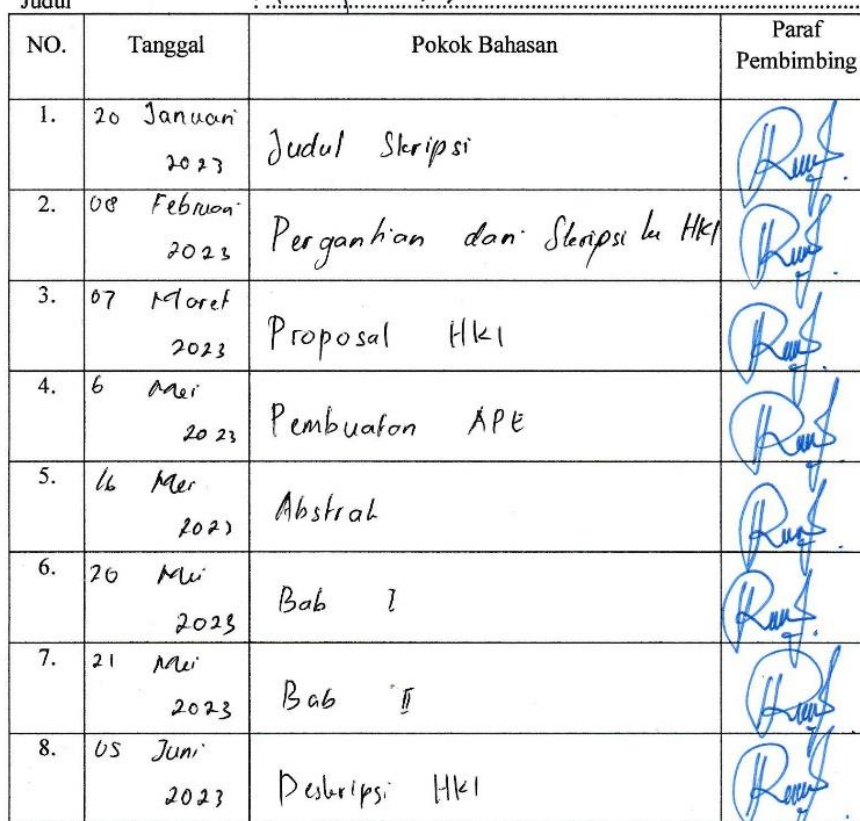 Judul :
NO. Tanggal Pokok Bahasan Paraf
Pembimbing
1. 20 Januari
2023 Judul Skripsi
2. 08 Februari
2023 Pergantian dari Skripsi ke HKI
3. 07 Maret
2023 Proposal HKI
4. 6 Mei
2023 Pembuatan APE
5. 16 Mei
2023 Abstrak
6. 20 Mei
2023 Bab I
7. 21 Mei
2023 Bab II
8. 05 Juni
2023 Deskripsi HKI